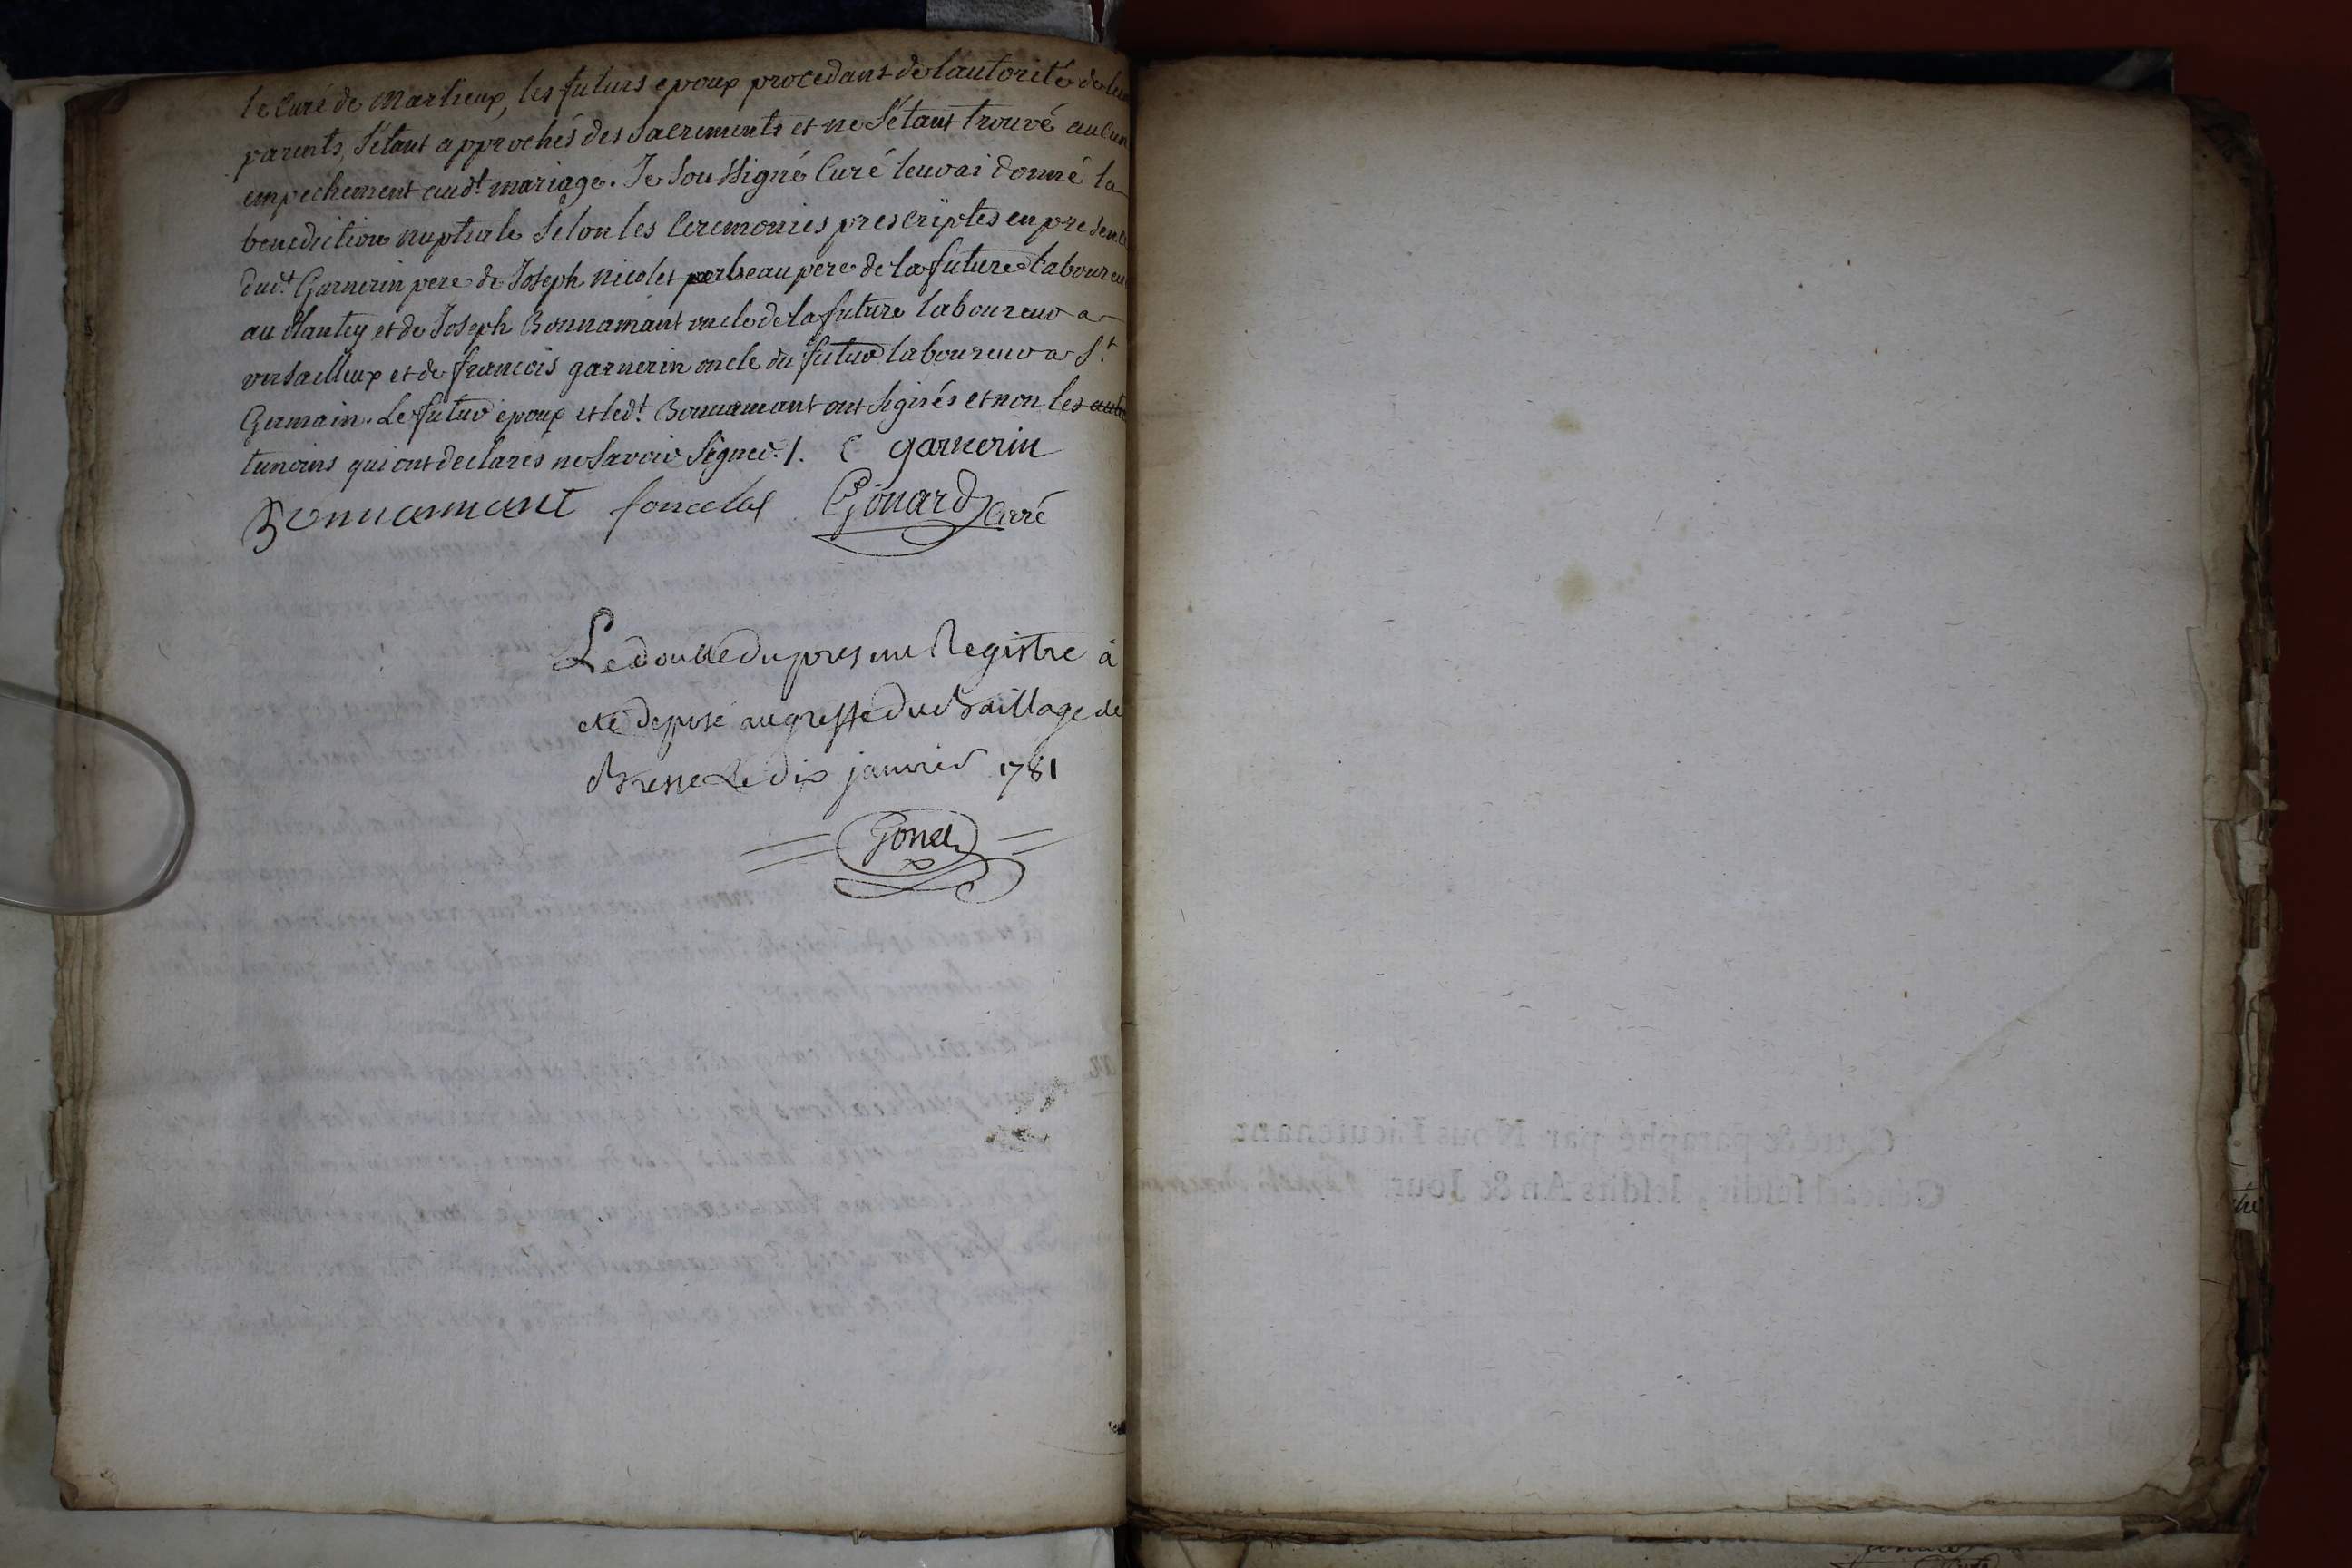 le Curé de Marlieux, les futurs epoux procedans de lautorité de leur
parents, s'étant approchés des Sacrements et ne s'étant trouvé aucun
empechement audt mariage. Je Soussigné Curé leur ai donné la
benediction nuptiale selon les Ceremonies prescriptes en presence
dudt Garnerin pere de Joseph Nicolet beau pere de la future laboureur
au plantey et de Joseph Bonnamant oncle de la future laboureur a
versailleux et de francois garnerin oncle du futur laboureur a St
Germain. Le futur epoux et ledt Bonnamant ont signés et non les
temoins qui ont declarés ne savoir signer ./. C garnerin
Bonnamant Gonard Curé
Le double du present Registre à
eté deposé au greffe du Baillage de
Bresse Le dix janvier 1781
Cotté & paraphé par Nous Lieutenant
Général susdit, lesdits An & Jour.